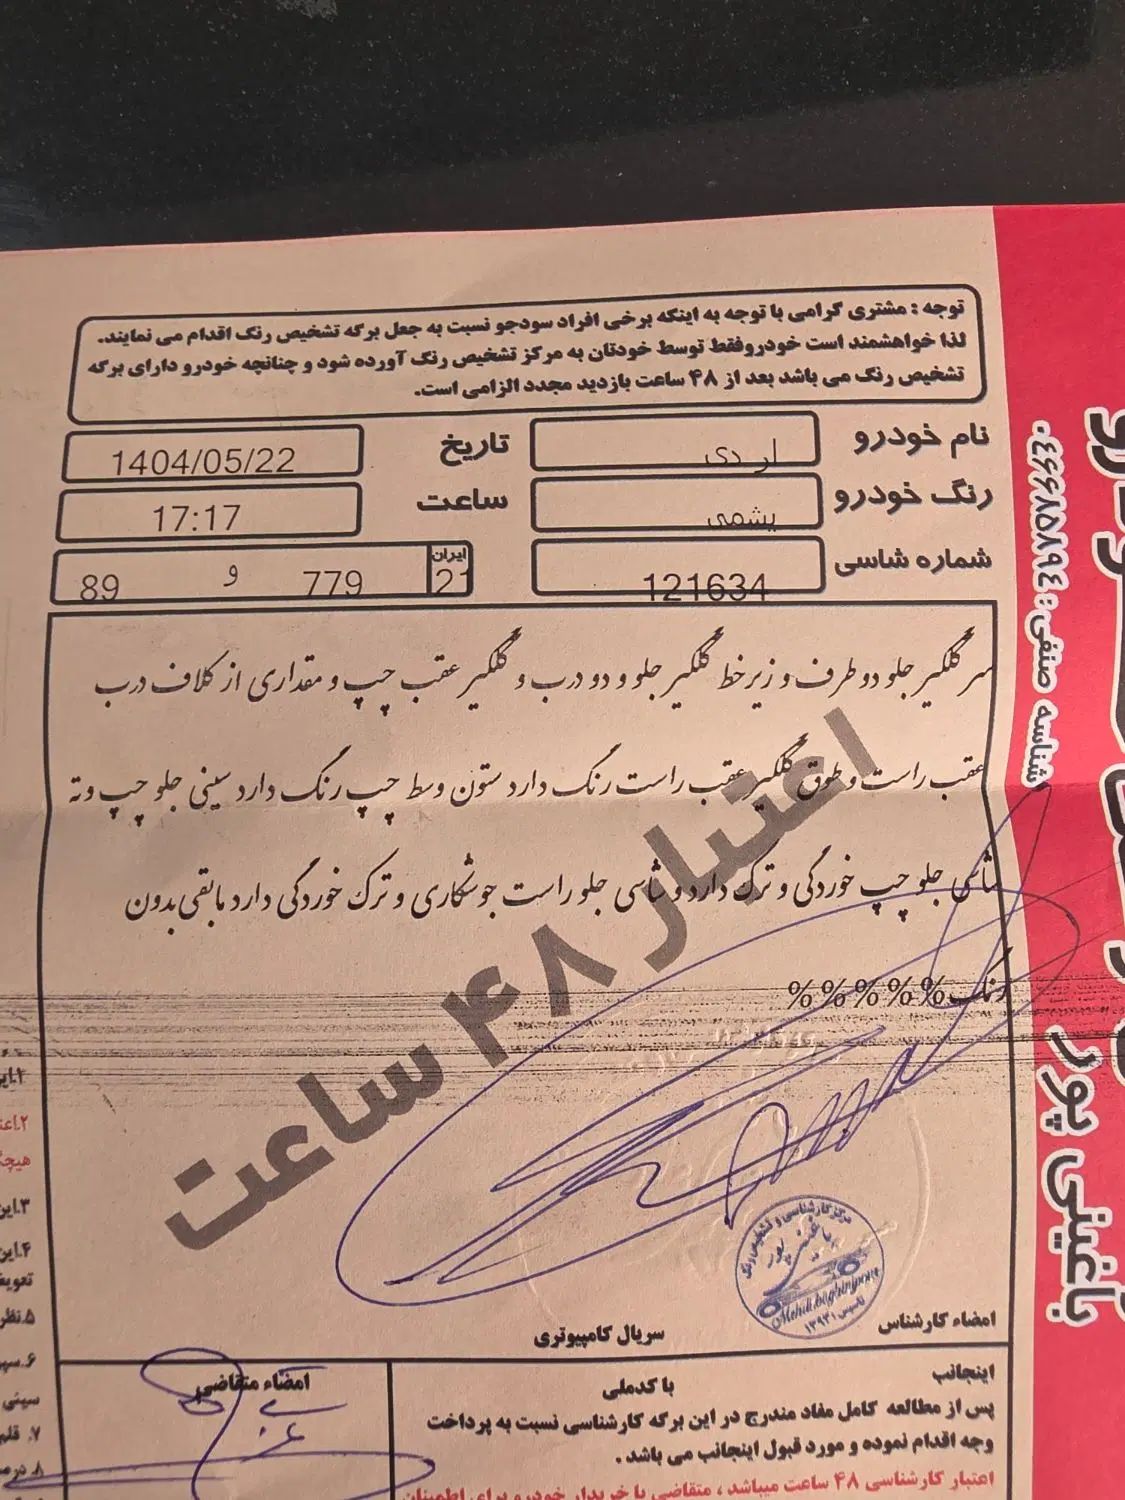 توجه : مشتری گرامی با توجه به اینکه برخی افراد سودجو نسبت به جعل برگه تشخیص رنگ اقدام می نمایند.
لذا خواهشمند است خودروفقط توسط خودتان به مرکز تشخیص رنگ آورده شود و چنانچه خودرو دارای برگه
تشخیص رنگ می باشد بعد از ۴۸ ساعت بازدید مجدد الزامی است.
نام خودرو ار دی تاریخ 1404/05/22
رنگ خودرو یشمی ساعت 17:17
شماره شاسی 121634 ایران 21 779 و 89
سر گلگیر جلو دو طرف و زیر خط گلگیر جلو و دو درب و گلگیر عقب چپ و مقداری از کلاف درب
عقب راست و طوق گلگیر عقب راست رنگ دارد ستون وسط چپ رنگ دارد سینی جلو چپ و ته
شاسی جلو چپ خوردگی و ترک دارد و شاسی جلو راست جوشکاری و ترک خوردگی دارد مابقی بدون
رنگ%%%%%
اعتبار ۴۸ ساعت
شناسه صنفی: ۰۴۶۶۸۵۸۹۴۰
باغینی پور
مرکز کارشناسی و تشخیص رنگ
باغینی پور
Mehdi baghinipour
تاسیس ۱۳۹۳
امضاء کارشناس
سریال کامپیوتری
اینجانب با کدملی
پس از مطالعه کامل مفاد مندرج در این برگه کارشناسی نسبت به پرداخت
وجه اقدام نموده و مورد قبول اینجانب می باشد .
اعتبار کارشناسی ۴۸ ساعت میباشد ، متقاضی یا خریدار خودرو برای اطمینان
امضاء متقاضی